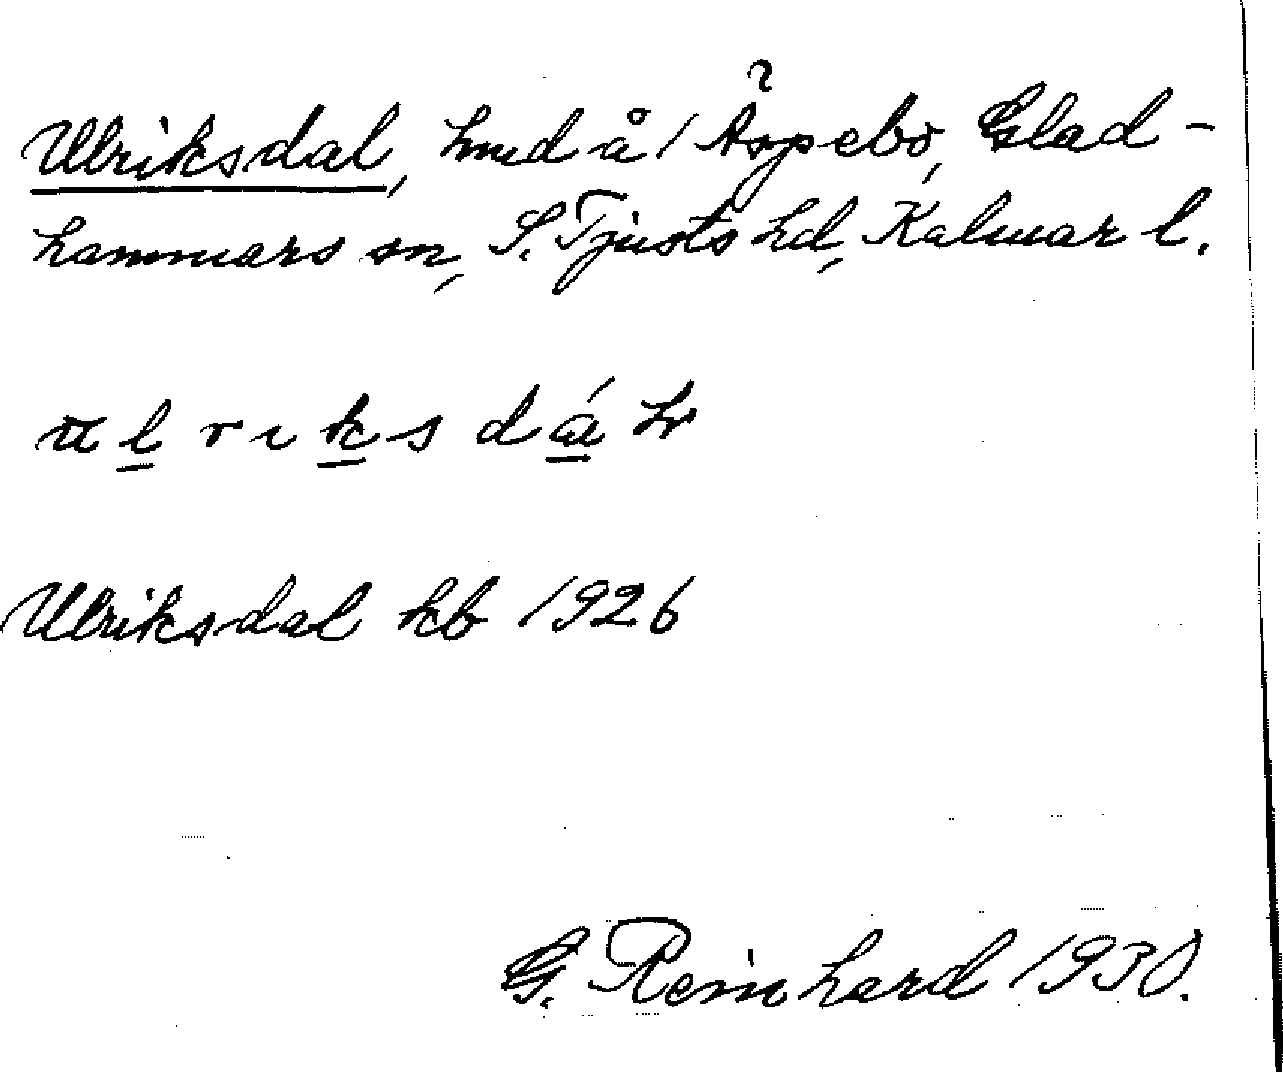 Ulriksdal, hmd å 1 Äspebo, Glad-
hammars sn, S. Tjusts hd, Kalmar l.
u l r ı k s d á
Ulriksdal kb 1926
G. Reinhard 1930.